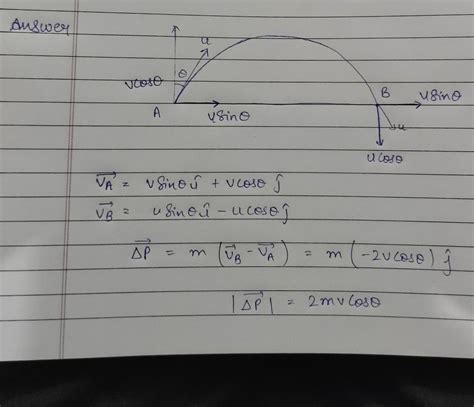 Answer
u
vcosθ
θ
A
vsinθ
B
vsinθ
u
ucosθ
$\vec{V_A}$ = vsinθ î + vcosθ ĵ
$\vec{V_B}$ = vsinθ î - ucosθ ĵ
$\vec{ΔP}$ = m ($\vec{v_B}$ - $\vec{V_A}$) = m (-2vcosθ) ĵ
|$\vec{ΔP}$| = 2mvcosθ